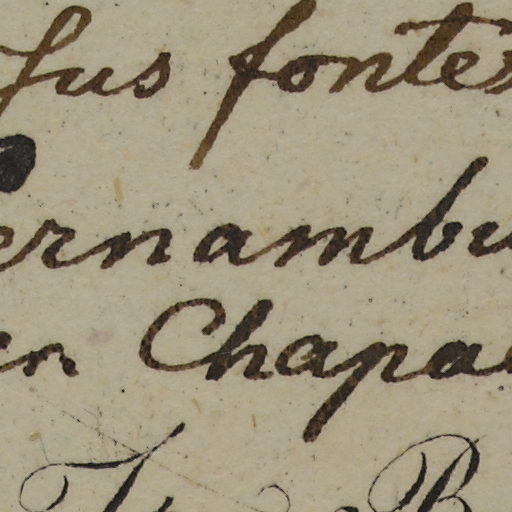 sus fontes
ernambu
en Chapa